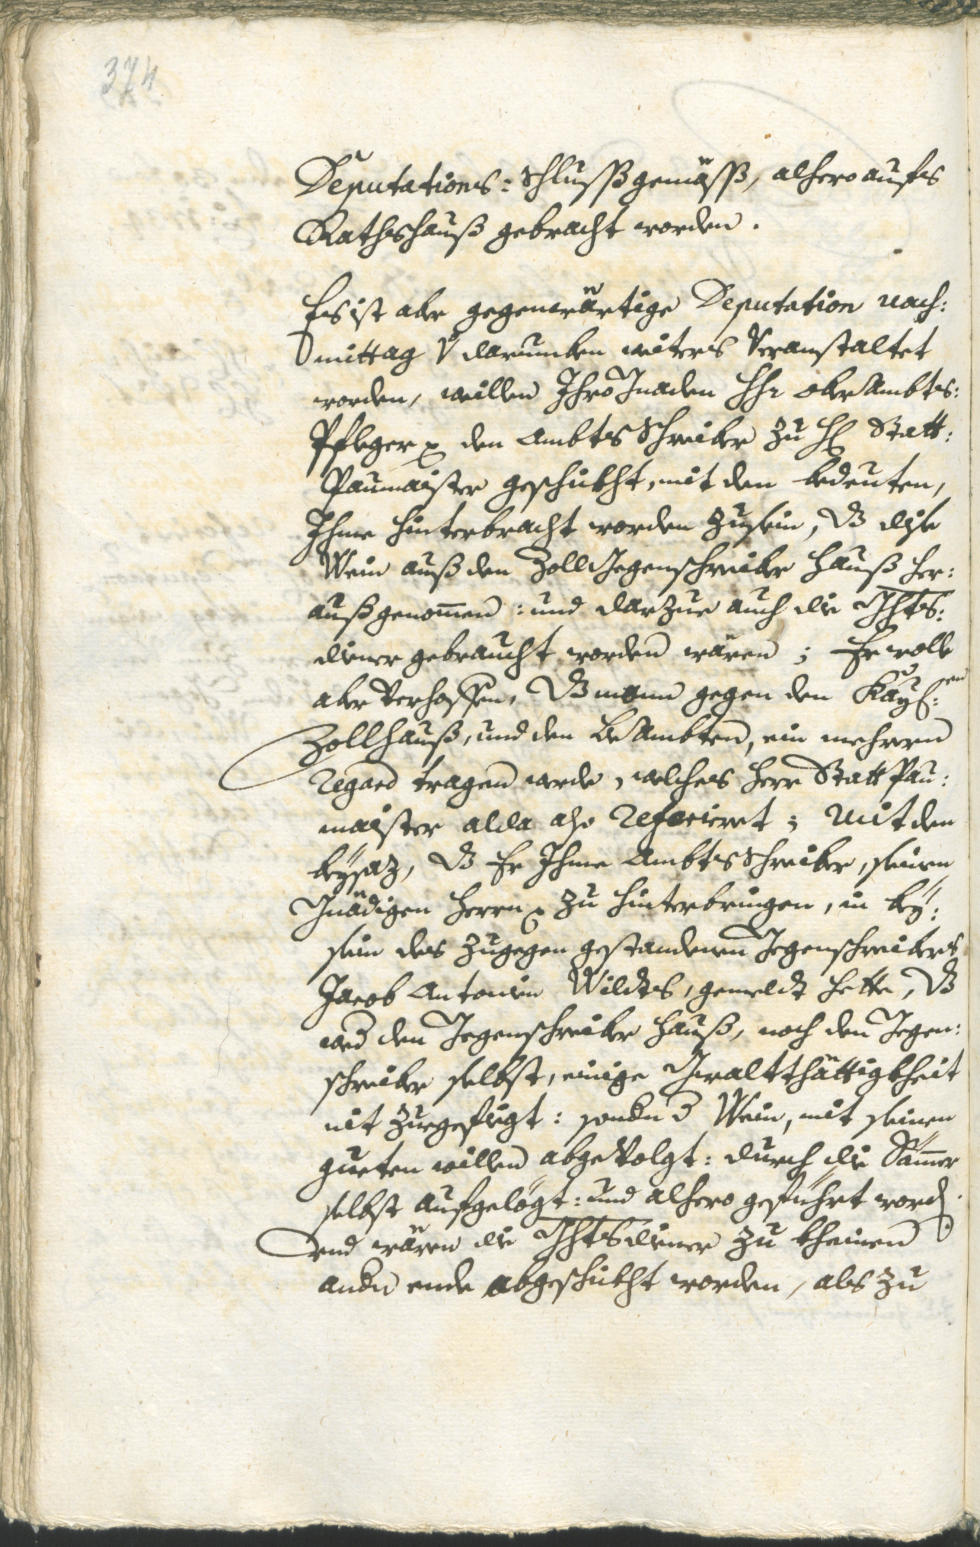 374
Deputations: Schlussß gemässß, alhero aufs
Rathshauß gebracht worden.
Es ist aber gegenwärtige Deputation nach:
mittag darumben weiters Veranstaltet
worden, weillen Ihro Gnaden Hhr ober Ambts:
Pfleger den Ambts Schreiber zu H Statt:
Paumaister geschikht, mit dem bedeuten,
Ihme hinterbracht worden zusein, dß dise
Wein auß den Zoll Gegenschreiber Hauß her:
auß genomen: und darzue auch die Ghts:
diener gebraucht worden wären; Er wolle
aber Verhoffen, dß mann gegen den Kayl:en
Zollhauß, und den beAmbten, ein mehrern
Regard tragen werde, welches herr Statt Pau:
maister alda also Referieret; Mit dem
beysaz, dß Er Ihme Ambts Schreiber, seinen
Gnädigen Herrn zu hinterbringen, in bey:
sein des zugegen gestandenen Gegenschreibers
Jacob Antonien Wildts, gemeldt hette, dß
wed den Gegenschreiber Hauß, noch den Gegen:
schreiber selbst, einige Gwaltthättigkheit
nit zuegefügt: sondn d Wein, mit seinem
gueten willen abgevolgt: durch die Sämer
selbst aufgelögt: und alhero geführt word.
und wären die Ghtsdiener zu kheinem
andn ende abgeschikht worden, als zu